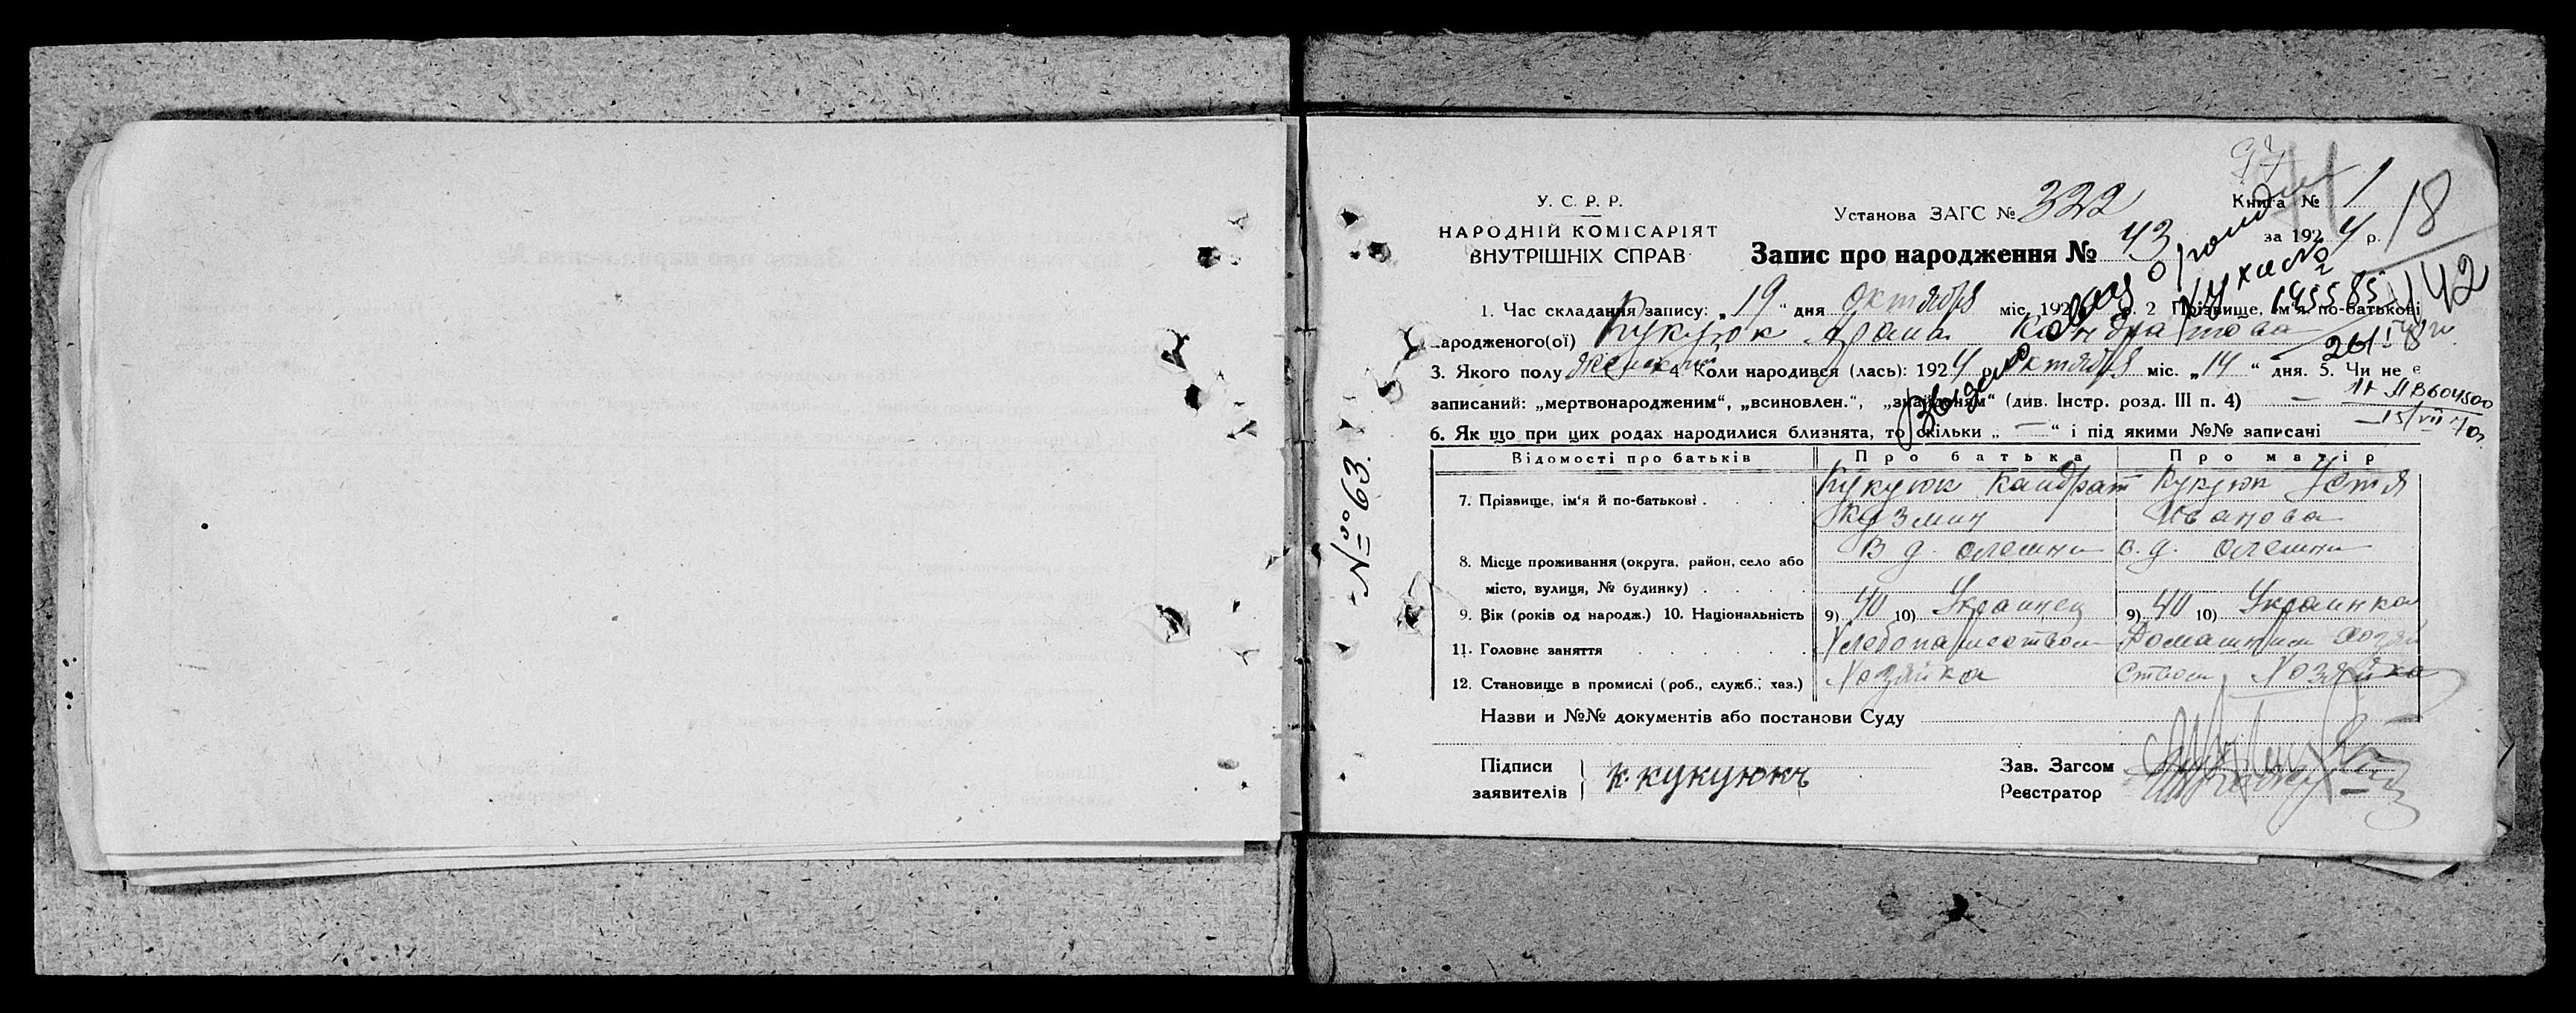 У. С. Р. Р.
НАРОДНІЙ КОМІСАРІЯТ
ВНУТРІШНІХ СПРАВ
Установа ЗАГС № 322
Книга № 1
за 1924 р.
18
Запис про народження № 43
142
1. Час складання запису: „19“ дня Октября міс. 192 р. 2 Прізвище, ім'я, по-батькові
ародженого(ої) Кукуюк Кондратова
3. Якого полу женск 4. Коли народився (лась): 1924 р. Октября міс. „14“ дня. 5. Чи не є
записаний: „мертвонародженим“, „всиновлен.“, „знайденям“ (див. Інстр. розд. III п. 4) —
6. Як що при цих родах народилися близнята, то скільки „—“ і під якими №№ записані
Відомості про батьків Про батька Про матір
7. Прізвище, ім'я й по-батькові . Кукуюк Кандрат Кукуюк Устя
Кузмин Иванова
8. Місце проживання (округа, район, село або В д. Олешни В. д. Олешни
місто, вулиця, № будинку)
9. Вік (років од народж.) 10. Національність 9) 40 10) Украинец 9) 40 10) Украинка
11. Головне заняття Хлебопашеством Домашним хозяй
12. Становище в промислі (роб., служб., хаз.) Хозяйка ством Хозяйка
Назви и №№ документів або постанови Суду
Підписи
заявителів
К. Кукуюкъ
Зав. Загсом
Реєстратор
№ 63.